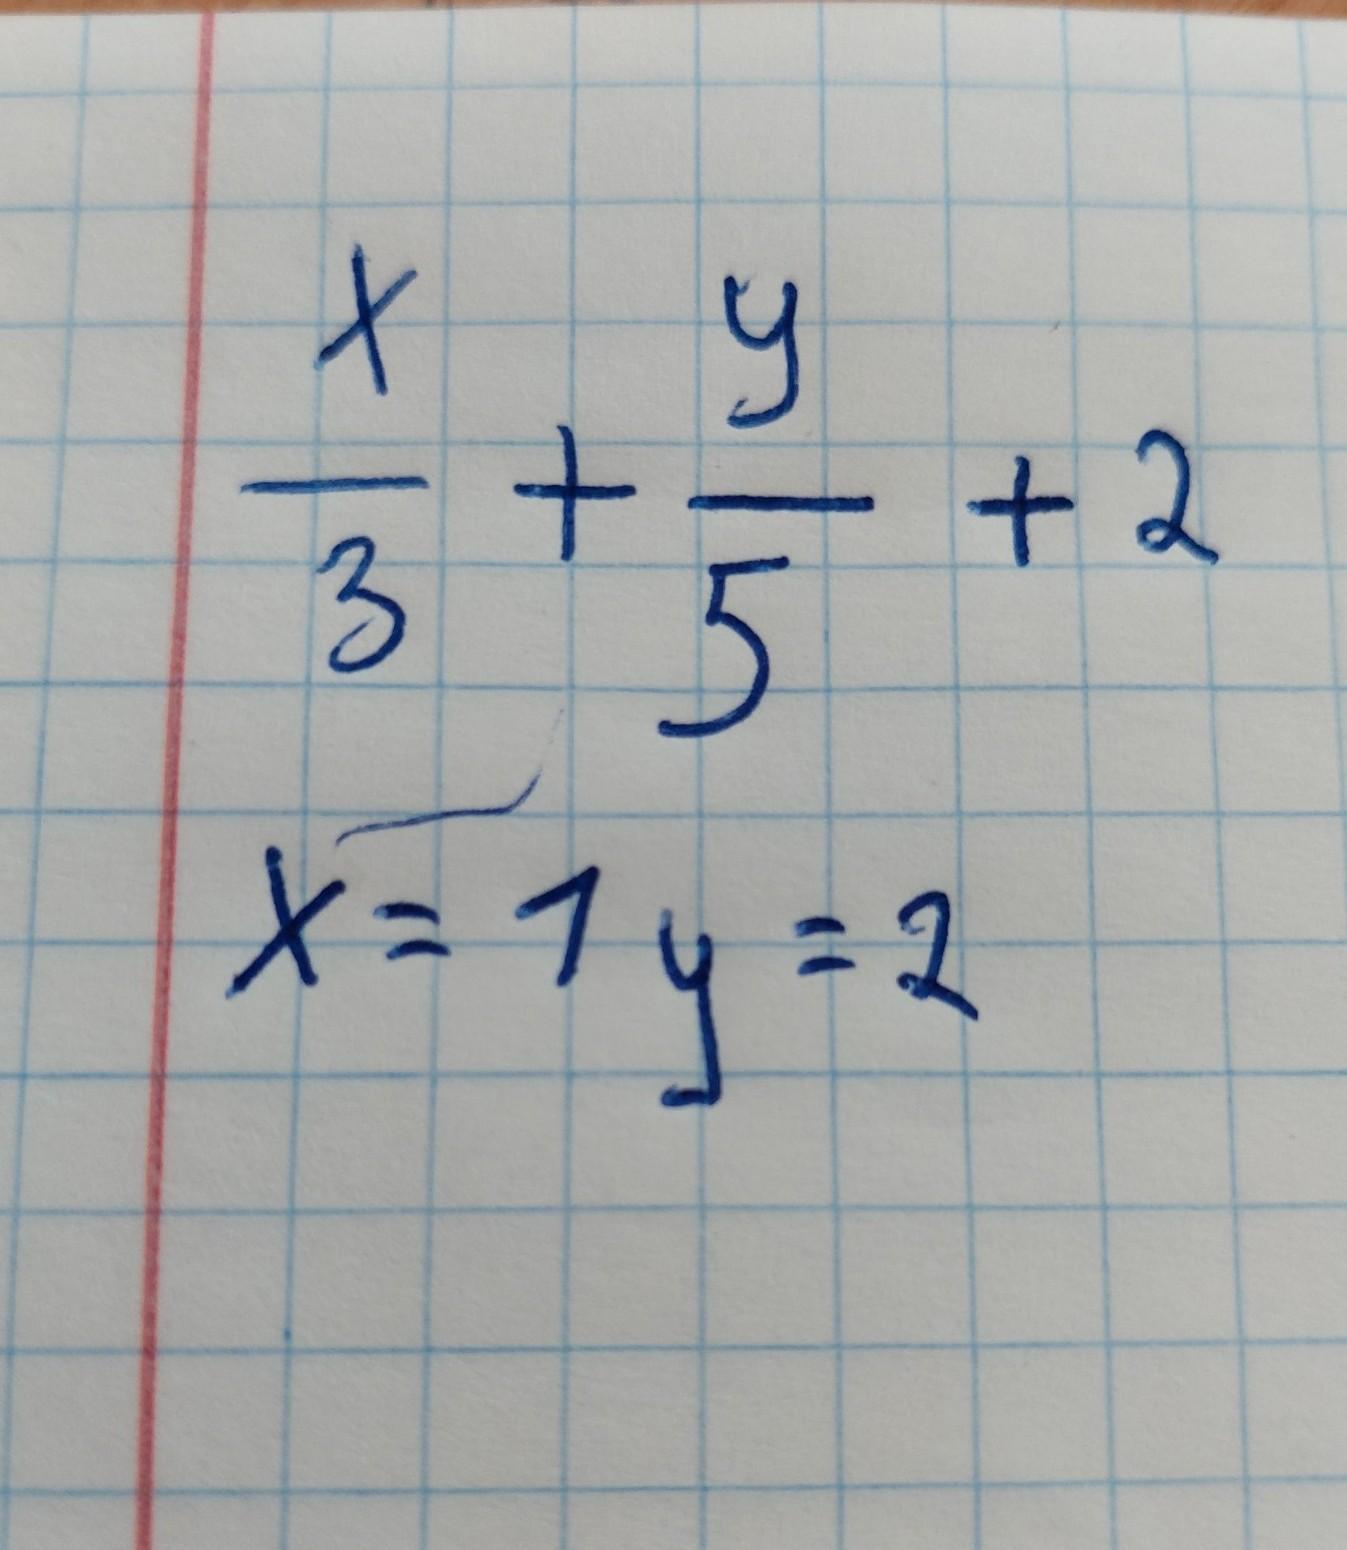 x/3 + y/5 + 2
x = 1 y = 2